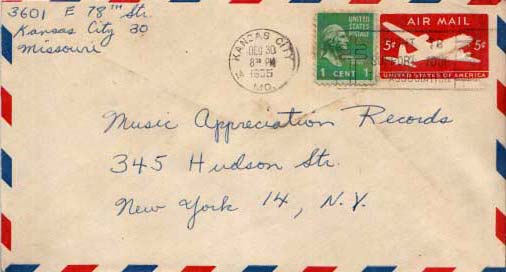 3601 E 78TH Str.
Kansas City 30
Missouri
KANSAS CITY
DEC 30
8 30 PM
1955
MO.
UNITED
STATES
POSTAGE
1 CENT 1
AIR MAIL
5¢ 5¢
UNITED STATES OF AMERICA
SUPPORT YOUR
ASSOCIATION
Music Appreciation Records
345 Hudson Str.
New York 14, N.Y.